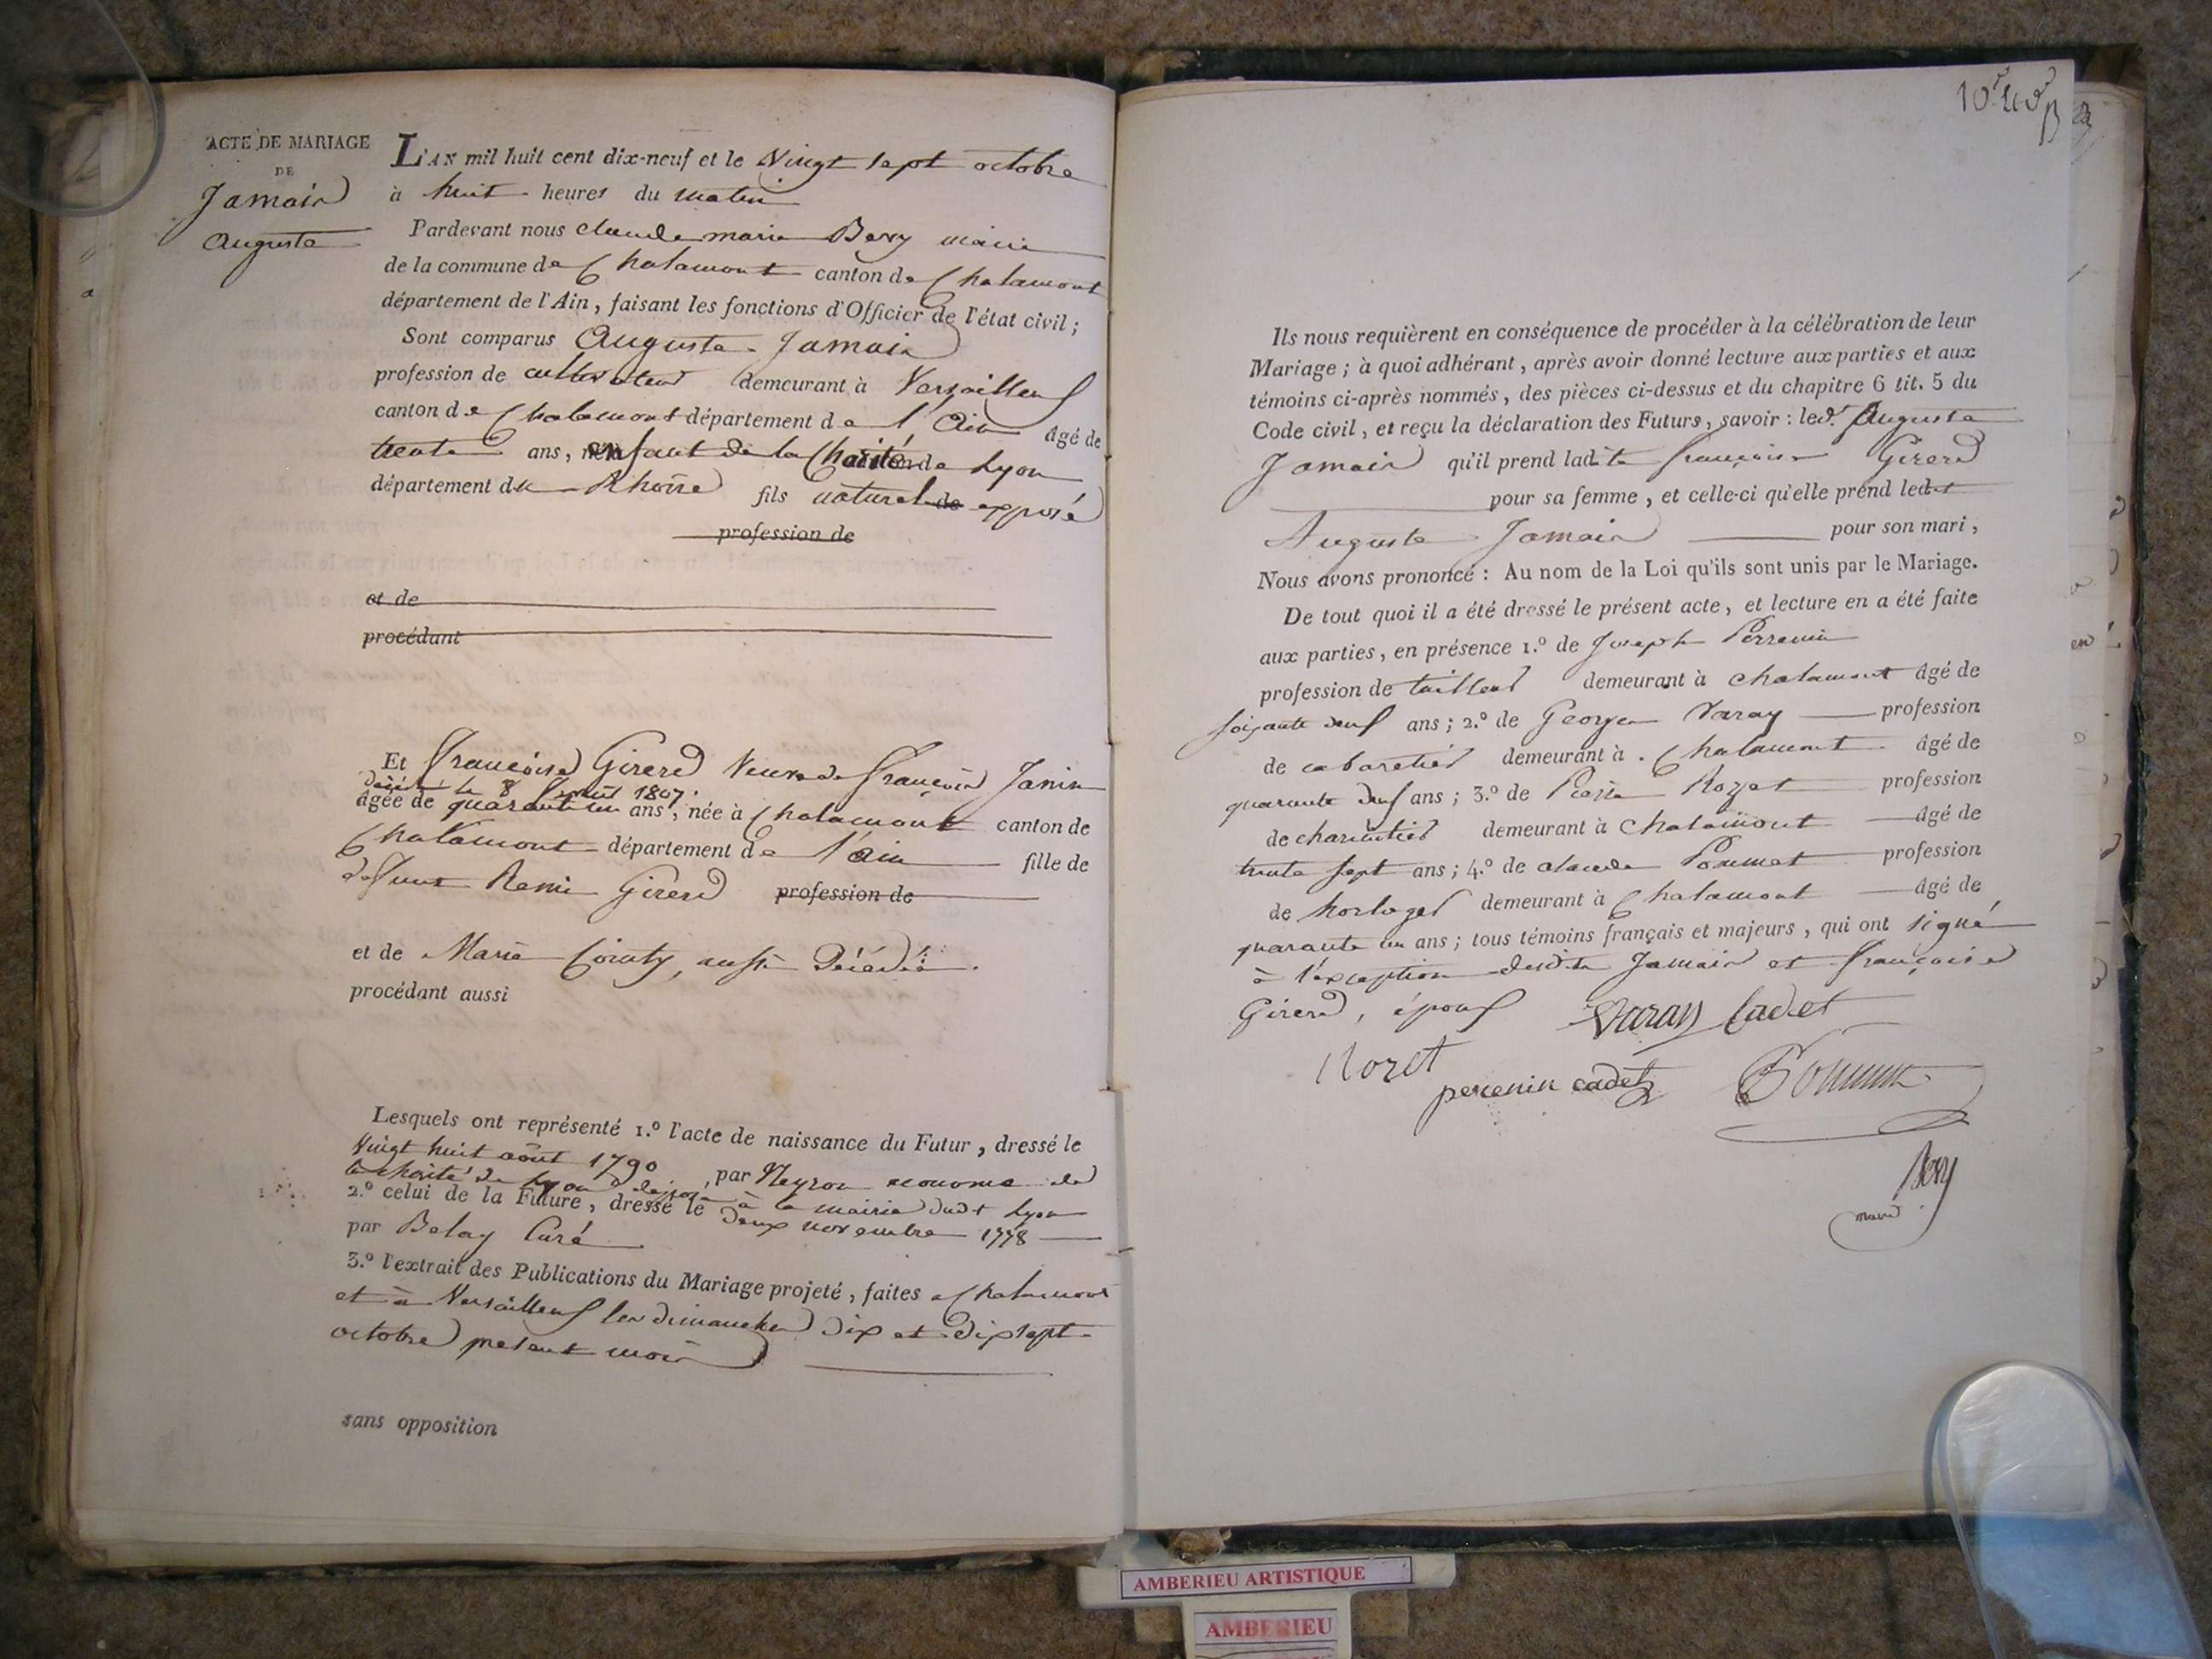 ACTE DE MARIAGE
DE
Jamain
Auguste
L'AN mil huit cent dix-neuf et le Vingt sept octobre
à huit heures du matin
Pardevant nous claude marie Bery maire
de la commune de Chalamont canton de Chalamont
département de l'Ain, faisant les fonctions d'Officier de l'état civil;
Sont comparus Auguste Jamain
profession de cultivateur demeurant à Versailleux
canton de Chalamont département de l'Ain âgé de
trente ans, enfant de la Charité de Lyon
département du Rhône fils naturel de exposé
profession de
et de
procédant
Et françoise Girerd Veuve de françois Janin
décédé le 8 1807.
âgée de quarante un ans, née à Chalamont canton de
Chalamont département de l'ain fille de
defunt Remi Girerd profession de
et de Marie aussi décédée.
procédant aussi
Lesquels ont représenté 1.º l'acte de naissance du Futur, dressé le
Vingt huit août 1790, par Neyron econome de
la charité de Lyon à la mairie dudt Lyon
2.º celui de la Future, dressé le deux novembre 1778
par Belay Curé
3.º l'extrait des Publications du Mariage projeté, faites a Chalamont
et à Versailleux les dimanches dix et dix sept
octobre present mois
sans opposition
Ils nous requièrent en conséquence de procéder à la célébration de leur
Mariage; à quoi adhérant, après avoir donné lecture aux parties et aux
témoins ci-après nommés, des pièces ci-dessus et du chapitre 6 tit. 5 du
Code civil, et reçu la déclaration des Futurs, savoir: ledt Auguste
Jamain qu'il prend ladite françoise Girerd
pour sa femme, et celle-ci qu'elle prend ledit
Auguste Jamain pour son mari,
Nous avons prononcé: Au nom de la Loi qu'ils sont unis par le Mariage.
De tout quoi il a été dressé le présent acte, et lecture en a été faite
aux parties, en présence 1.º de Joseph Perrenin
profession de tailleur demeurant à chalamont âgé de
soixante neuf ans; 2.º de George Varay profession
de cabaretier demeurant à Chalamont âgé de
quarante neuf ans; 3.º de Pierre Rozet profession
de charcutier demeurant à Chalamont âgé de
trente sept ans; 4.º de claude Pommet profession
de horloger demeurant à Chalamont âgé de
quarante un ans; tous témoins français et majeurs, qui ont signé
à l'exception desdits Jamain et françoise
Girerd, époux Varay Cadet
Rozet
perenin cadet
Bery
maire
AMBERIEU ARTISTIQUE
AMBERIEU